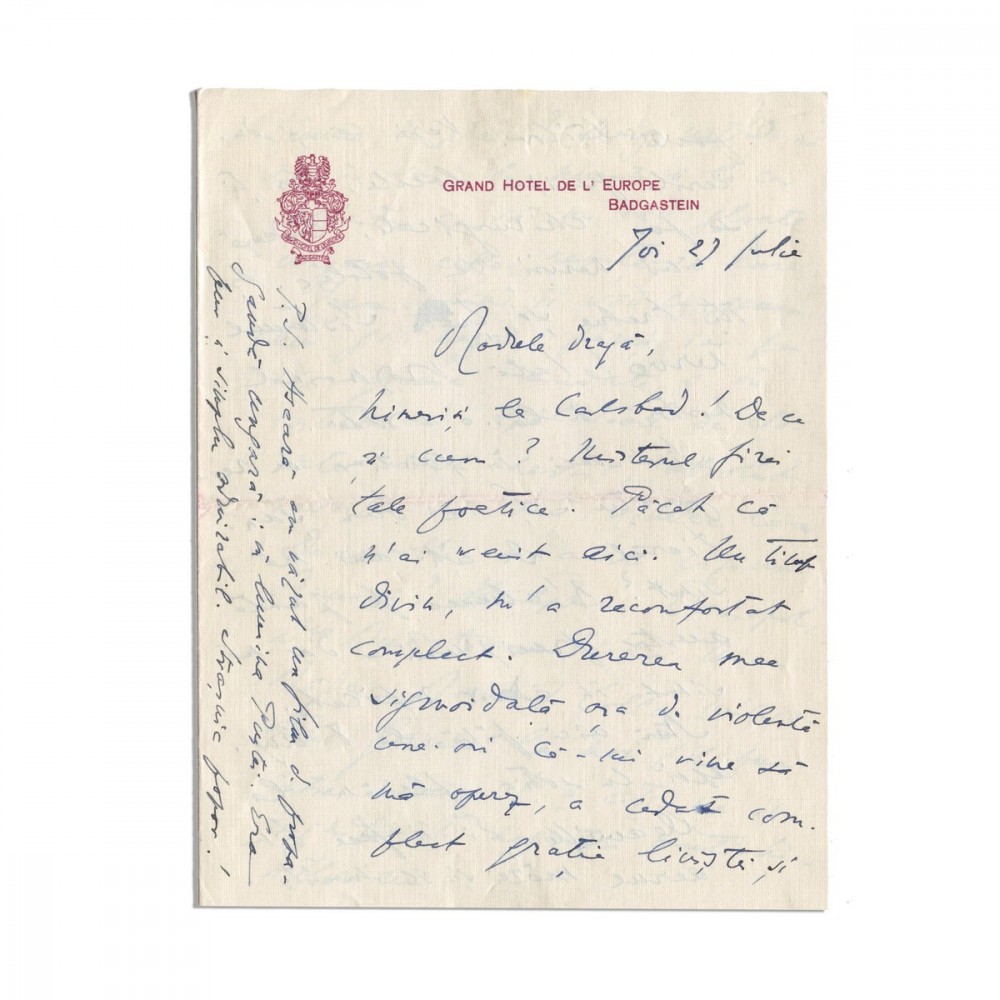 GRAND HOTEL DE L' EUROPE
BADGASTEIN
Joi 27 Iulie
Rodule dragă,
Nimeriși la Carlsbad! De ce
și cum? Misterul firei
tale poetice. Păcat că
n'ai venit aici. Un timp
divin, m'a reconfortat
complect. Durerea mea
sigmoidală, așa d. violentă
une-ori că-mi vine să
mă operez, a cedat com-
plect grație liniștei și
P.S. Aseară am văzut un film d. propa-
gandă ungară: în lumina Pustei. Era
pur și simplu admirabil. Strașnic popor!